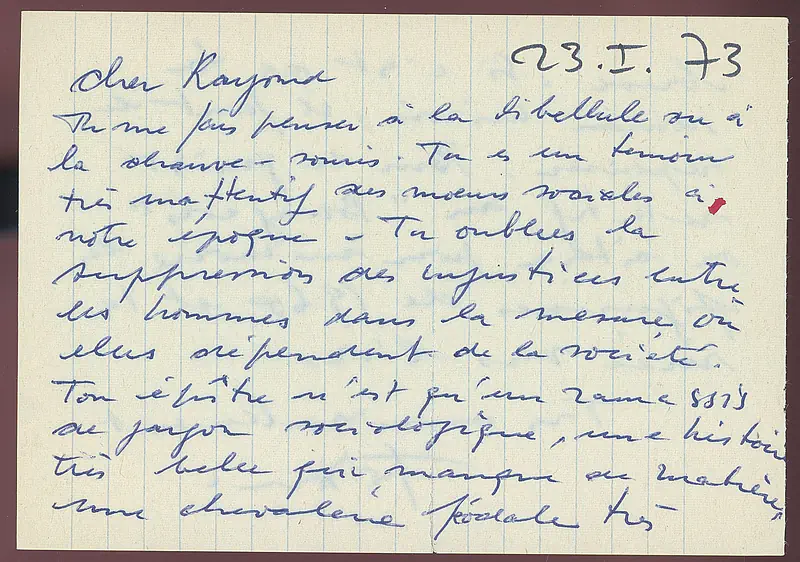 23.I.73
cher Raymond
Tu me fais penser à la libellule ou à
la chauve-souris. Tu es un temoin
très inattentif des mœurs sociales à
notre époque - Tu oublies la
suppression des injustices entre
les hommes dans la mesure où
elles dépendent de la société.
Ton épître n'est qu'un ramassis
de jargon sociologique, une histoire
très belle qui manque de matière,
une chevalerie féodale très